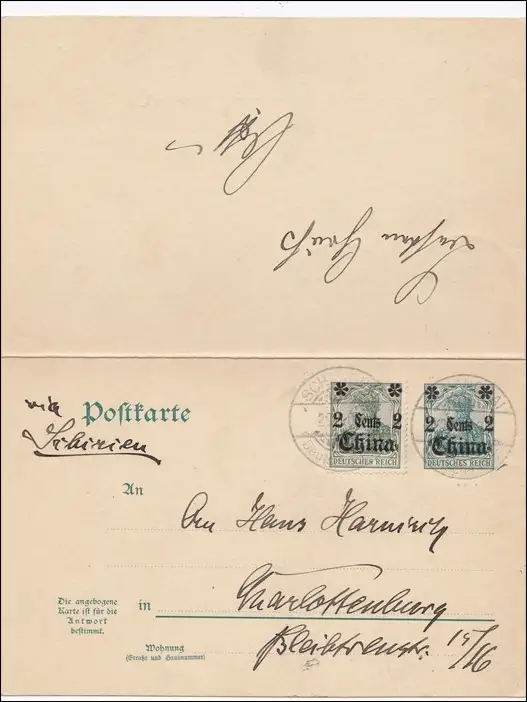 Besten Gruß
SCH
via
Sibirien
Postkarte
2 Cents 2
China
DEUTSCHES REICH
2 Cents 2
China
DEUTSCHES REICH
An
Hans Harnisch
Die angebogene
Karte ist für die
Antwort
bestimmt.
in Charlottenburg
Wohnung
(Straße und Hausnummer)
Bleibtreustr. 15/16